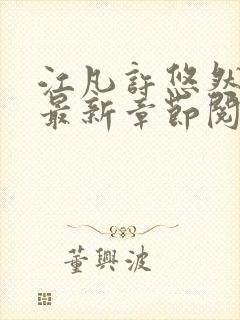 江凡許悠然
最新章節閱
董興波